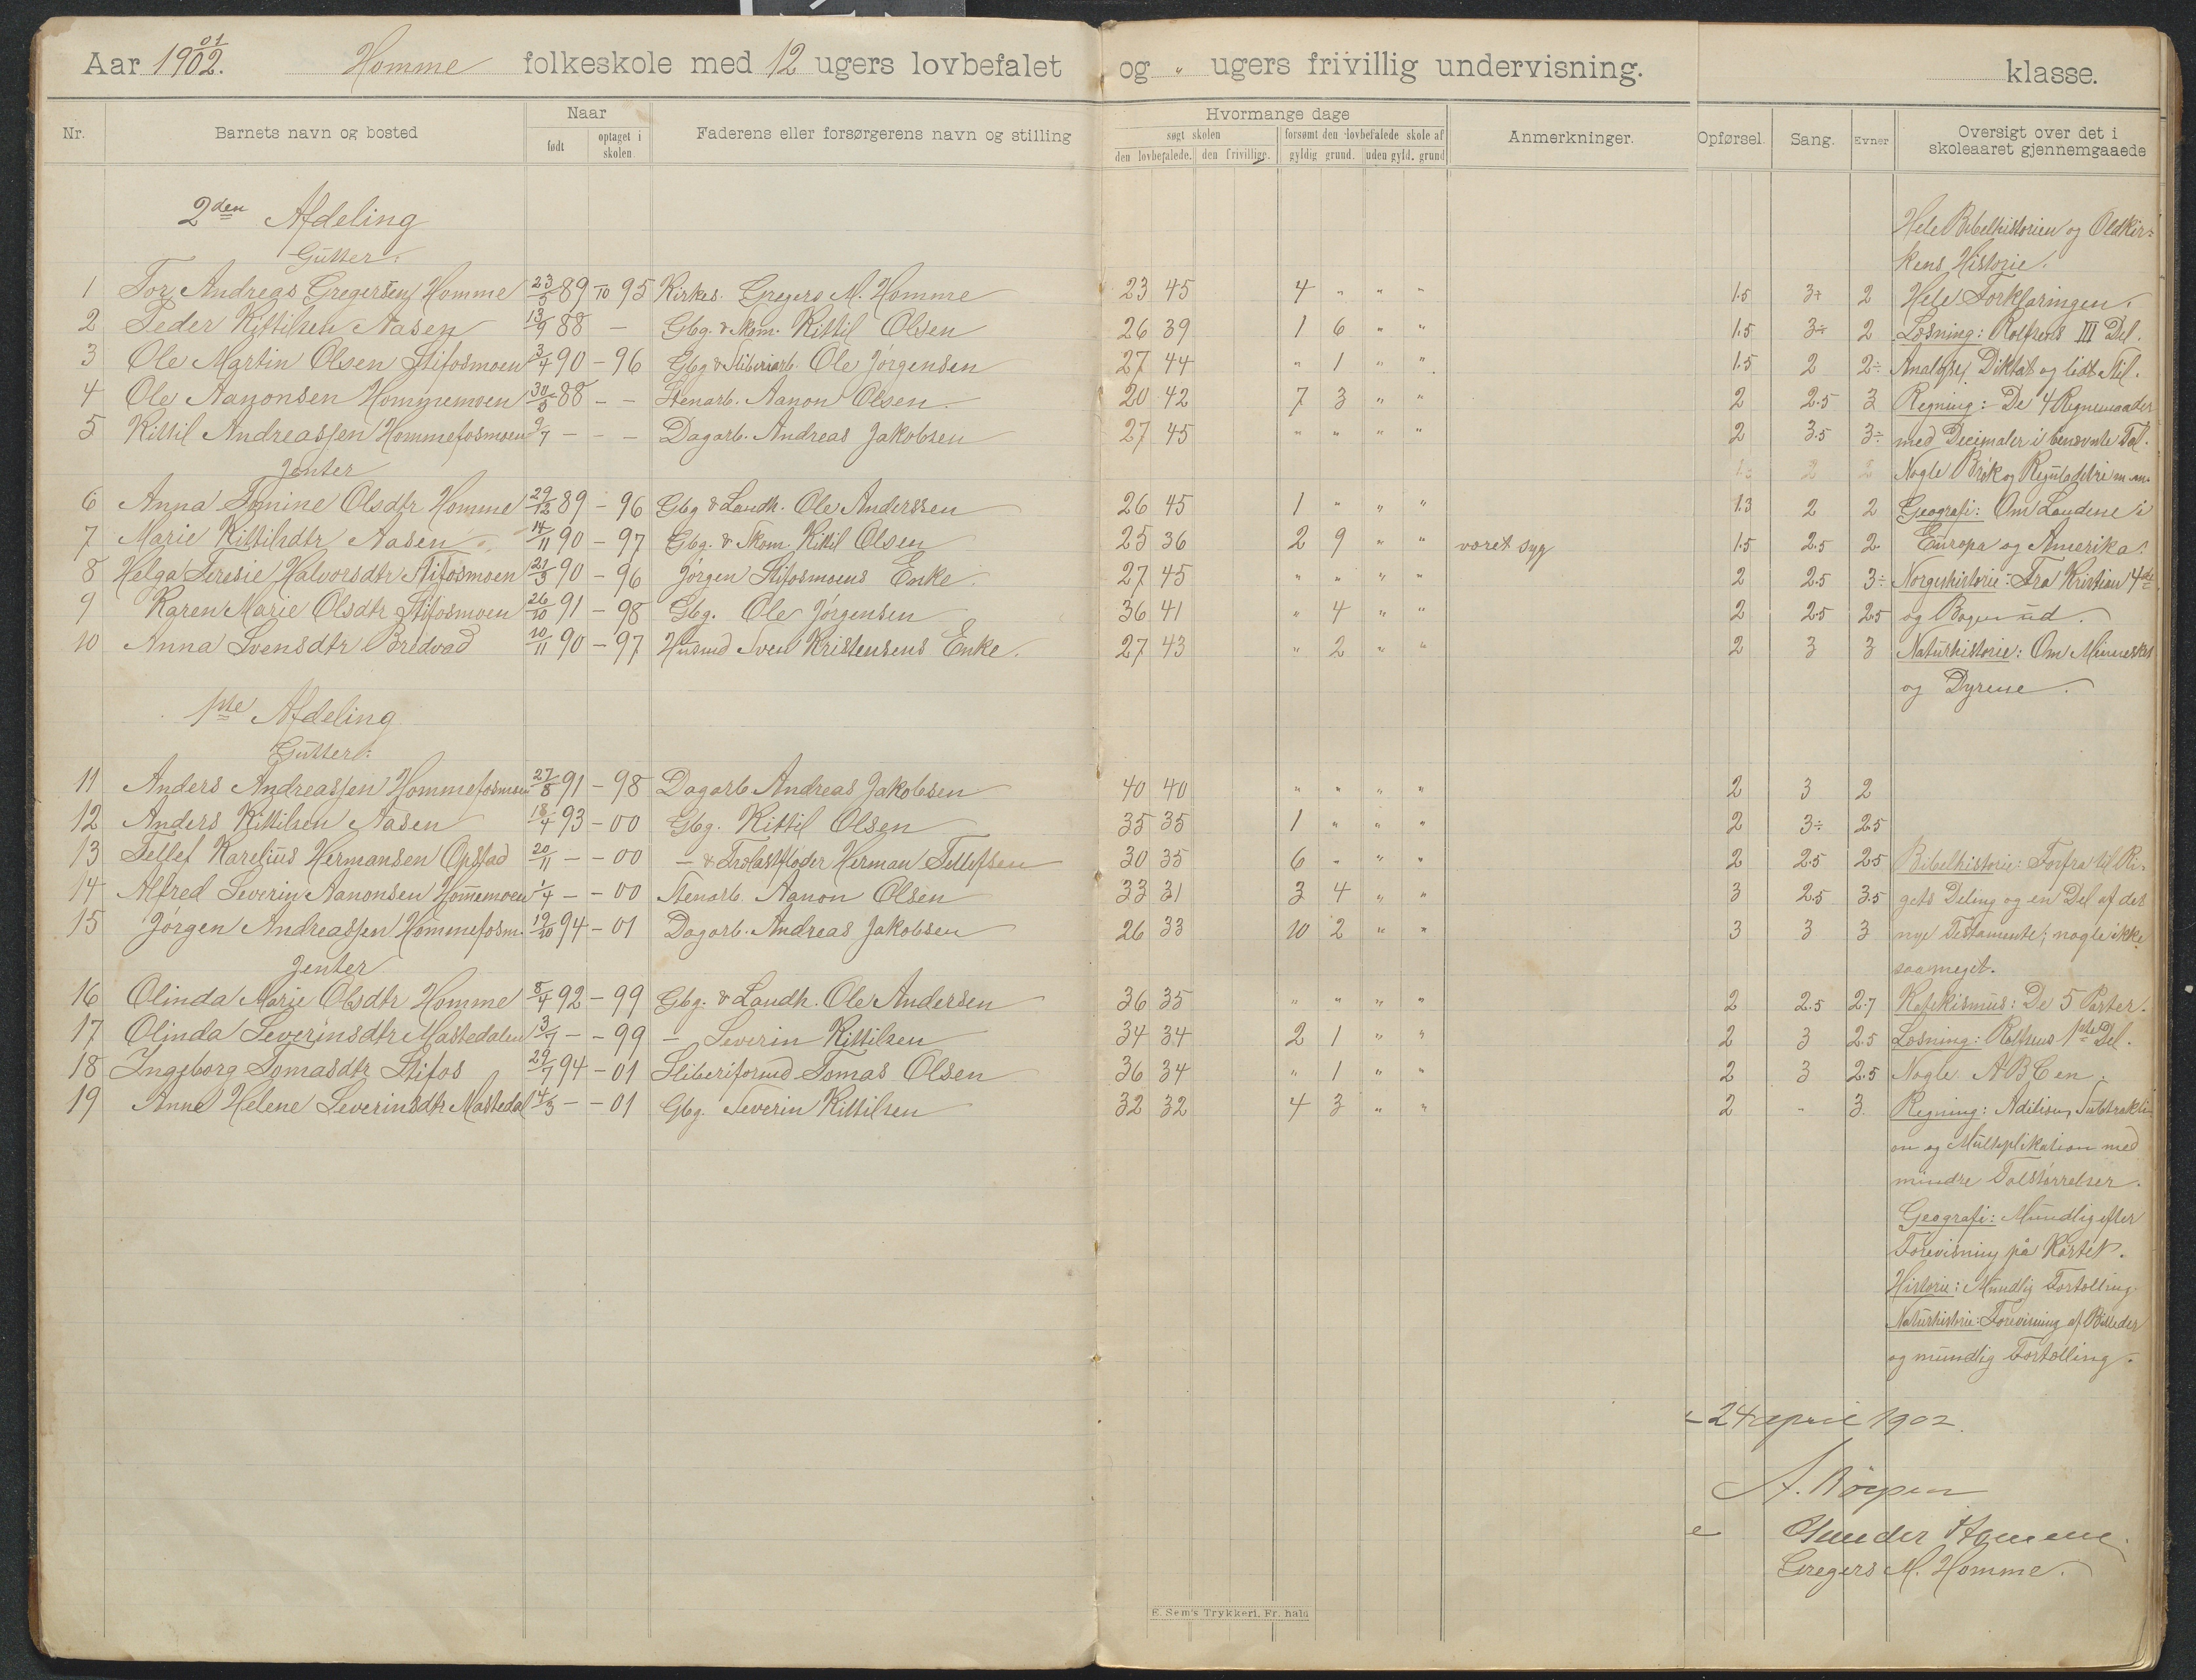 Aar 1901/02. Homme folkeskole med 12 ugers lovbefalet og " ugers frivillig undervisning. klasse.
Nr. Barnets navn og bosted Naar født optaget i skolen Faderens eller forsørgerens navn og stilling Hvormange dage søgt skolen den lovbefalede. den frivillige. forsømt den lovbefalede skole af gyldig grund. uden gyld. grund Anmerkninger. Opførsel. Sang. Evner Oversigt over det i skoleaaret gjennemgaaede
2den Afdeling
Gutter.
1 Tor Andreas Gregersen Homme 23/5 89 – 10 95 Kirkes. Gregers M. Homme 23 45 4 " " " 1.5 3÷ 2
2 Peder Kittilsen Aasen 13/9 88 – Gbg. & Skom. Kittil Olsen 26 39 1 6 " " 1.5 3÷ 2
3 Ole Martin Olsen Stifosmoen 3/4 90 – 96 Gbg & Sliberiarb. Ole Jørgensen 27 44 " 1 " " 1.5 2 2÷
4 Ole Aanonsen Hommemoen 30/5 88 – – Stenarb. Aanon Olsen. 20 42 7 3 " " 2 2.5 3
5 Kittil Andreassen Hommefosmoen 9/7 – – – Dagarb. Andreas Jakobsen 27 45 " " " " 2 3.5 3÷
Jenter
6 Anna Tomine Olsdtr Homme 29/12 89 – 96 Gbg & Landh. Ole Anderssen 26 45 1 " " " 1.3 2 2
7 Marie Kittilsdtr Aasen 14/11 90 – 97 Gbg. & Skom. Kittil Olsen 25 36 2 9 " " været syg 1.5 2.5 2
8 Helga Teresie Halvorsdtr Stifosmoen 21/3 90 – 96 Jørgen Stifosmoens Enke. 27 45 " " " " 2 2.5 3÷
9 Karen Marie Olsdtr Stifosmoen 26/10 91 – 98 Gbg. Ole Jørgensen 36 41 " 4 " " 2 2.5 2.5
10 Anna Svensdtr Bredvad 10/11 90 – 97 Husmd Sven Kristensens Enke. 27 43 " 2 " " 2 3 3
1ste Afdeling
Gutter:
11 Anders Andreassen Hommefosmoen 27/8 91 – 98 Dagarb Andreas Jakobsen 40 40 " " " " 2 3 2
12 Anders Kittilsen Aasen 18/4 93 – 00 Gbg. Kittil Olsen 35 35 1 " " " 2 3÷ 2.5
13 Tellef Karelius Hermansen Opstad 20/11 – – 00 – & Trælastfløder Herman Tellefsen 30 35 6 " " " 2 2.5 2.5
14 Alfred Severin Aanonsen Hommemoen 1/4 – – 00 Stenarb. Aanon Olsen 33 31 3 4 " " 3 2.5 3.5
15 Jørgen Andreassen Hommefosm. 19/10 94 – 01 Dagarb. Andreas Jakobsen 26 33 10 2 " " 3 3 3
Jenter
16 Olinda Marie Olsdtr Homme 8/4 92 – 99 Gbg. & Landh. Ole Andersen 36 35 " " " " 2 2.5 2.7
17 Olinda Severinsdtr Mastedalen 3/7 – – 99 – Severin Kittilsen 34 34 2 1 " " 2 3 2.5
18 Ingeborg Tomasdtr Stifos 29/7 94 – 01 Sliberiformd Tomas Olsen 36 34 " 1 " " 2 3 2.5
19 Anne Helene Severinsdtr Mastedal 14/3 – – 01 Gbg. Severin Kittilsen 32 32 4 3 " " 2 " 3
Hele Bibelhistorien og Oldkir=
kens Historie.
Hele Forklaringen.
Læsning: Rolfsens III Del.
Analyse, Diktat og lidt Stil.
Regning: De 4 Regnemaader
med Decimaler i benævnte Tal.
Nogle Brøk og Reguladetri m.m.
Geografi: Om Landene i
Europa og Amerika.
Norgeshistorie: Fra Kristian 4de
og Bogen ud.
Naturhistorie: Om Mennesket
og Dyrene.
Bibelhistorie: Forfra til Ri-
gets Deling og en Del af det
nye Testamente, nogle ikke
saa meget.
Katekismus: De 5 Parter.
Læsning: Rolfsens 1ste Del.
Nogle ABCen.
Regning: Adition, Subtrakti-
on og Multiplikation med
mindre Talstørrelser.
Geografi: Mundlig efter
Forevisning på Kartet.
Historie: Mundlig Fortælling.
Naturhistorie: Forevisning af Billeder
og mundlig Fortælling.
24 april 1902.
Gunder Homme.
Gregers M. Homme.
E. Sem's Trykkeri, Fr. hald